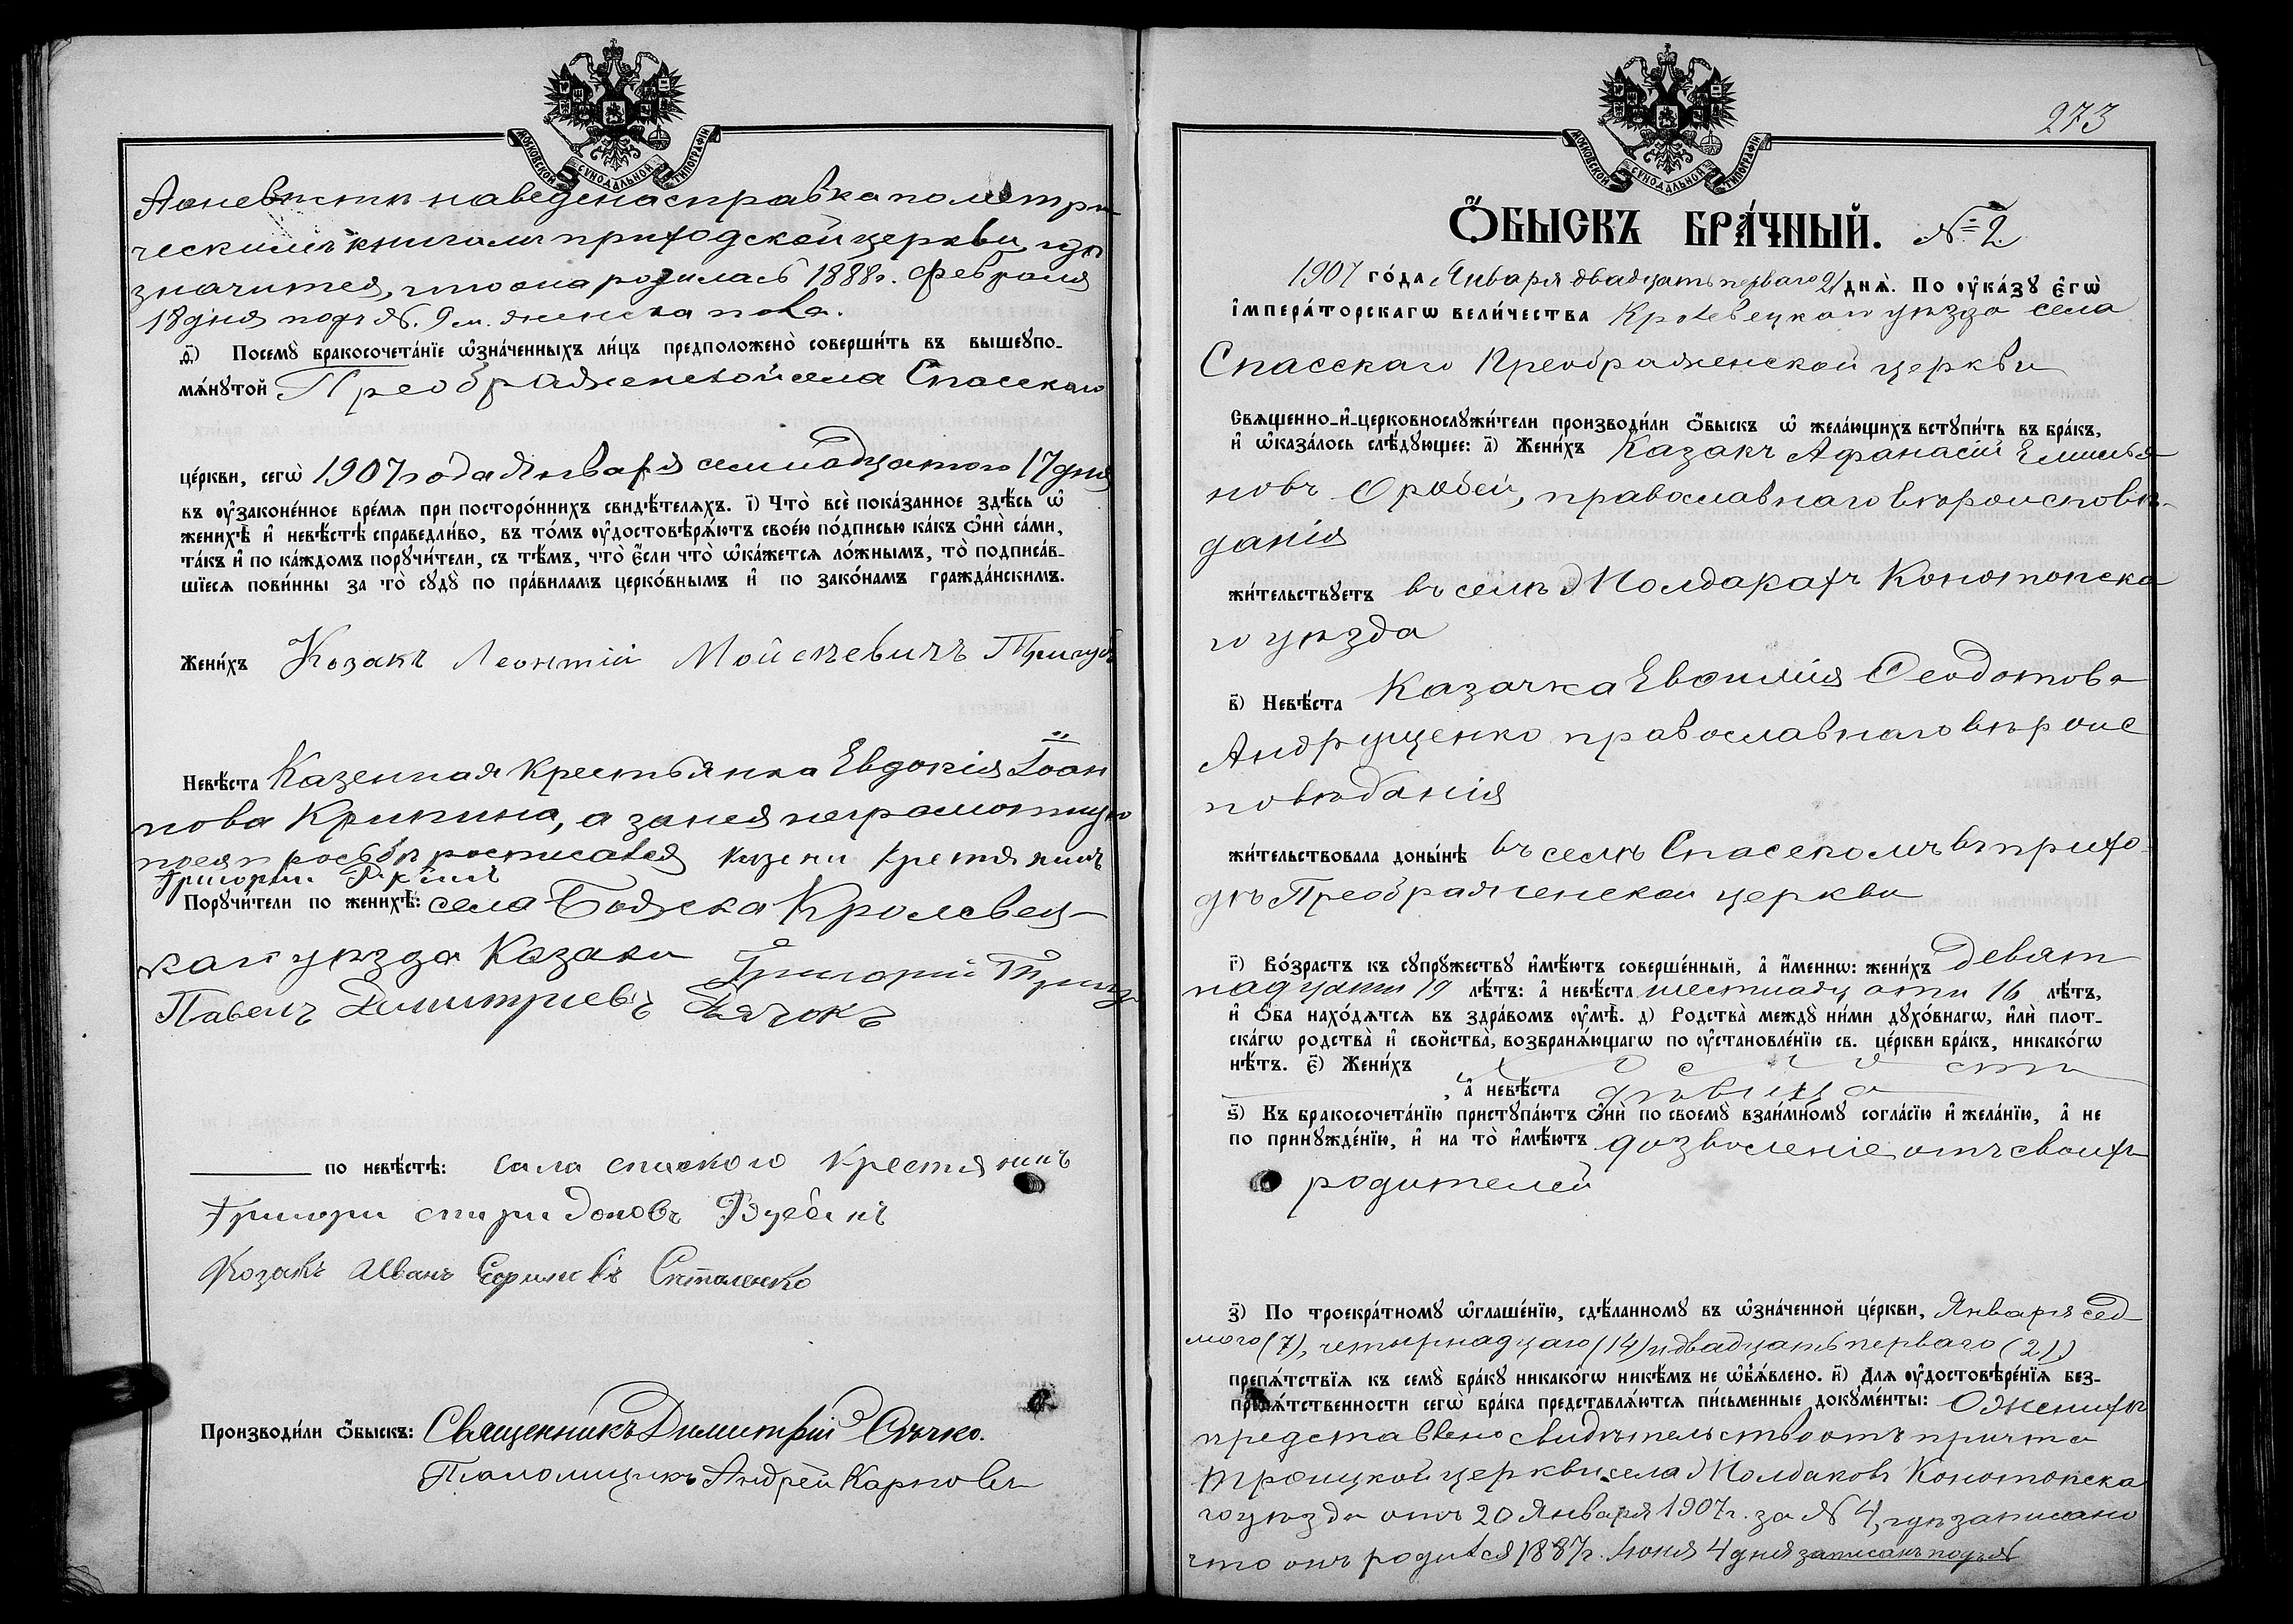 МОСКОВСКОЙ СѴНОДАЛЬНОЙ ТИПОГРАФІИ
А о невѣстѣ наведена справка по метри-
ческимъ книгамъ приходской церкви, гдѣ
значится, что она родилась 1888 г. Февраля
18 дня подъ №. 9 м. женска пола.
д҃і) Посемꙋ̀ бракосочета́нїе ѡ҆зна́ченныхъ ли́цъ предположено̀ соверши́ть въ вышеꙋпо-
мѧ́нꙋтой Преображенской села Спасскаго
це́ркви, сегѡ̀ 1907 года Января семнадцатого 17 дня
въ ᲂу҆законе́нное вре́мѧ при посторо́ннихъ свидѣ́телѧхъ. і҃) Что̀ всѐ пока́занное здѣ́сь ѡ҆
женихѣ̀ и҆ невѣ́стѣ справедли́во, въ то́мъ ᲂу҆достовѣрѧ́ютъ свое́ю по́дписью ка́къ ѻ҆нѝ са́ми,
та́къ и҆ по ка́ждомъ порꙋчи́тели, съ тѣ́мъ, что̀ є҆́сли что̀ ѡ҆ка́жетсѧ ло́жнымъ, то̀ подписа́в-
шїесѧ пови́нны за то̀ сꙋдꙋ̀ по пра́виламъ церко́внымъ и҆ по зако́намъ гражда́нскимъ.
Жени́хъ Козакъ Леонтій Мойсѣевичъ Тригубъ
Невѣ́ста Казенная крестьянка Евдокія Іоан
нова Крикина, а за нея неграмотную
по ея прозьбѣ росписался казени кретянинъ
Григорій
Порꙋчи́тели по женихѣ̀: села Божка Кролевец-
каго уѣзда Казаки Григорій
Павелъ Димитріевъ Дячокъ
по невѣ́стѣ: сила спаского крестянинъ
Григори спиридоновъ
Козакъ Иванъ Ефимовъ
Производи́ли ѻ҆́быскъ: Священникъ Димитрій Сѣчко.
Псаломщикъ Андрей Карповъ
273
МОСКОВСКОЙ СѴНОДАЛЬНОЙ ТИПОГРАФІИ
Ѻ҆́БЫСКЪ БРА́ЧНЫЙ. №= 2
1907 го́да Января двадцать перваго 21 днѧ̀. По ᲂу҆ка́зꙋ є҆гѡ̀
і҆мпера́торскагѡ вели́чества Кролевецкаго уѣзда села
Спасскаго Преображенской церкви
Свѧщенно-и҆-церковнослꙋжи́тели производи́ли ѻ҆́быскъ ѡ҆ жела́ющихъ встꙋпи́ть въ бра́къ,
и҆ ѡ҆каза́лось слѣ́дꙋющее: а҃) Жени́хъ Казакъ Афанасій Емилья
новъ Оробей, православнаго вѣроисповѣ-
данія
жи́тельствꙋетъ въ селѣ Молдакахъ Конотопска
го уѣзда
в҃) Невѣ́ста Казачка Евфимія Ѳеодотова
Андрущенко православнаго вѣроис
повѣданія
жи́тельствовала доны́нѣ въ селѣ Спасскомъ въ прихо-
дѣ Преображенской церкви
г҃) Во́зрастъ къ сꙋпрꙋжествꙋ и҆мѣ́ютъ соверше́нный, а҆ и҆́менно: жени́хъ девят
надцати 19 лѣ́тъ: а҆ невѣ́ста шестнадцати 16 лѣ́тъ,
и҆ ѻ҆́ба нахо́дѧтсѧ въ здра́вомъ ᲂу҆мѣ̀. д҃) Родства̀ междꙋ̀ ни́ми дꙋхо́внагѡ, и҆лѝ плот-
ска́гѡ родства̀ и҆ свойства̀, возбранѧ́ющагѡ по ᲂу҆становле́нїю св. це́ркви бра́къ, никако́гѡ
нѣ́тъ. є҃) Жени́хъ холостъ
, а҆ невѣ́ста дѣвица
ѕ҃) Къ бракосочета́нїю пристꙋпа́ютъ ѻ҆нѝ по своемꙋ̀ взаи́мномꙋ согла́сїю и҆ жела́нїю, а҆ не
по принꙋжде́нїю, и҆ на то̀ и҆мѣ́ютъ дозволеніе отъ своихъ
родителей
з҃) По троекра́тномꙋ ѡ҆глаше́нїю, сдѣ́ланномꙋ въ ѡ҆зна́ченной це́ркви, Января сед
мого (7), четырнадцаго (14) и двадцать перваго (21)
препѧ́тствїѧ къ семꙋ̀ бра́кꙋ никако́гѡ никѣ́мъ не ѡ҆б̾ѧ́влено. и҃) Длѧ ᲂу҆достовѣре́нїѧ без-
препѧ́тственности сегѡ̀ бра́ка представлѧ́ютсѧ пи́сьменные докꙋме́нты: О женихѣ
представлено свидѣтельство отъ причта
Троицкой церкви села Молдаковъ Конотопска
го уѣзда отъ 20 Января 1907 г. за № 4, гдѣ записано
что онъ родился 1887 г. Іюня 4 дня записанъ подъ №